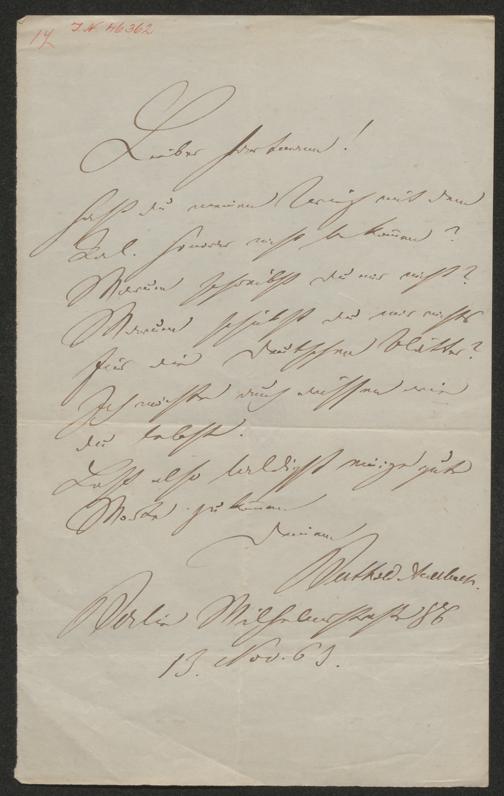 14
I.N. 46362
Lieber Hartmann!
Hast du meinen Brief mit dem
Kal. Honorar nicht bekommen?
Warum schreibst du mir nicht?
Warum schickst du mir nichts
für die deutschen Blätter?
Ich möchte auch wissen wie
du lebst.
Laß also baldigst einige gute
Worte zukommen
Deinem
Berthold Auerbach.
Berlin Wilhelmsstraße 86
13. Nov. 63.